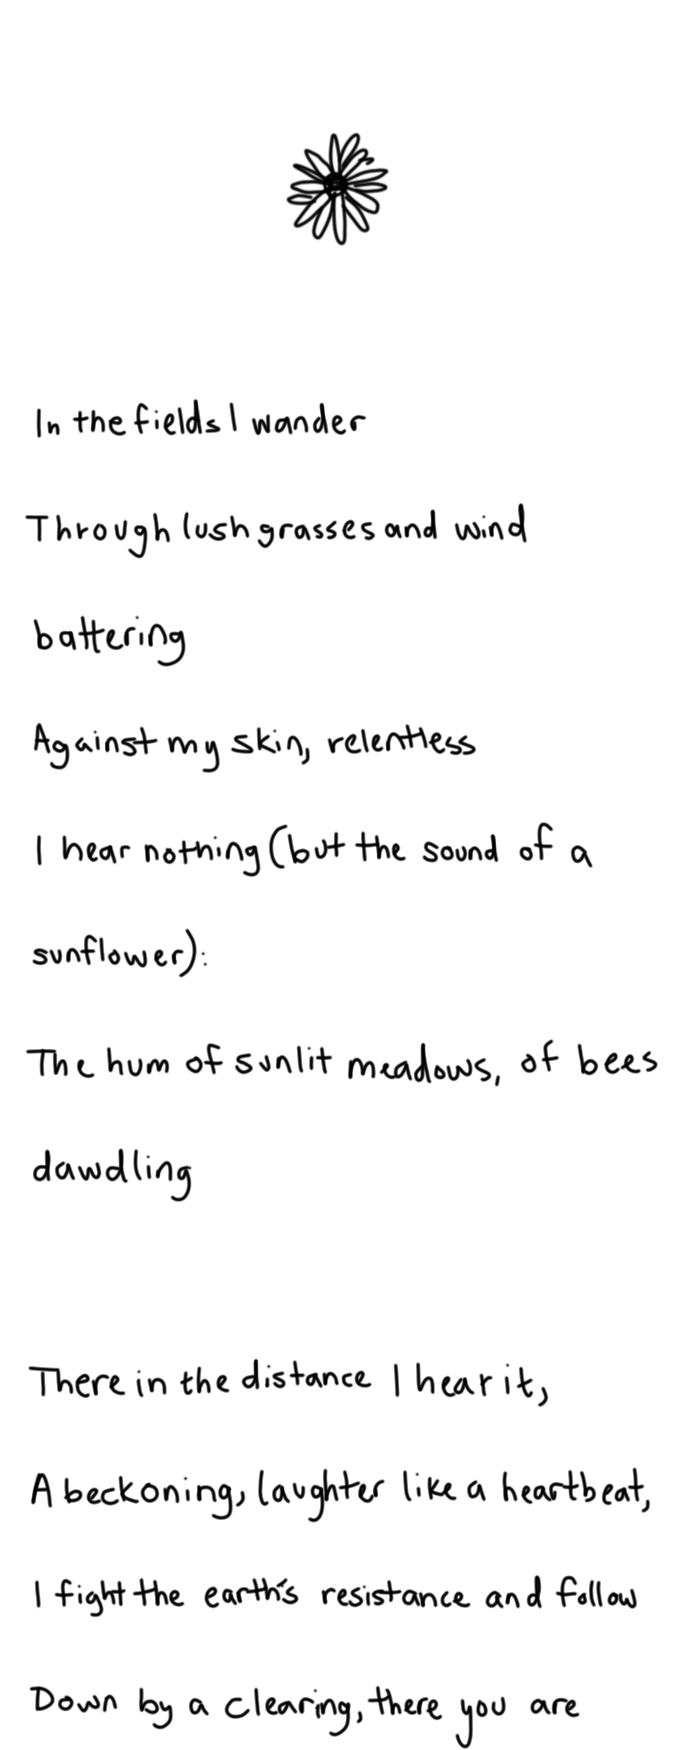 In the fields I wander
Through lush grasses and wind
battering
Against my skin, relentless
I hear nothing (but the sound of a
sunflower):
The hum of sunlit meadows, of bees
dawdling
There in the distance I hear it,
A beckoning, laughter like a heartbeat,
I fight the earth's resistance and follow
Down by a clearing, there you are